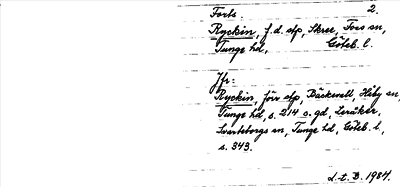 Forts. 2.
Ryckin, f.d. stp, Skree, Foss sn,
Tunge hd, Göteb. l.
Jfr:
Ryckin, förr stp, Bäckevall, Håby sn,
Tunge hd, s. 214 o. gd, Leråker,
Svarteborgs sn, Tunge hd, Göteb. l,
s. 343.
d. t. B. 1984.